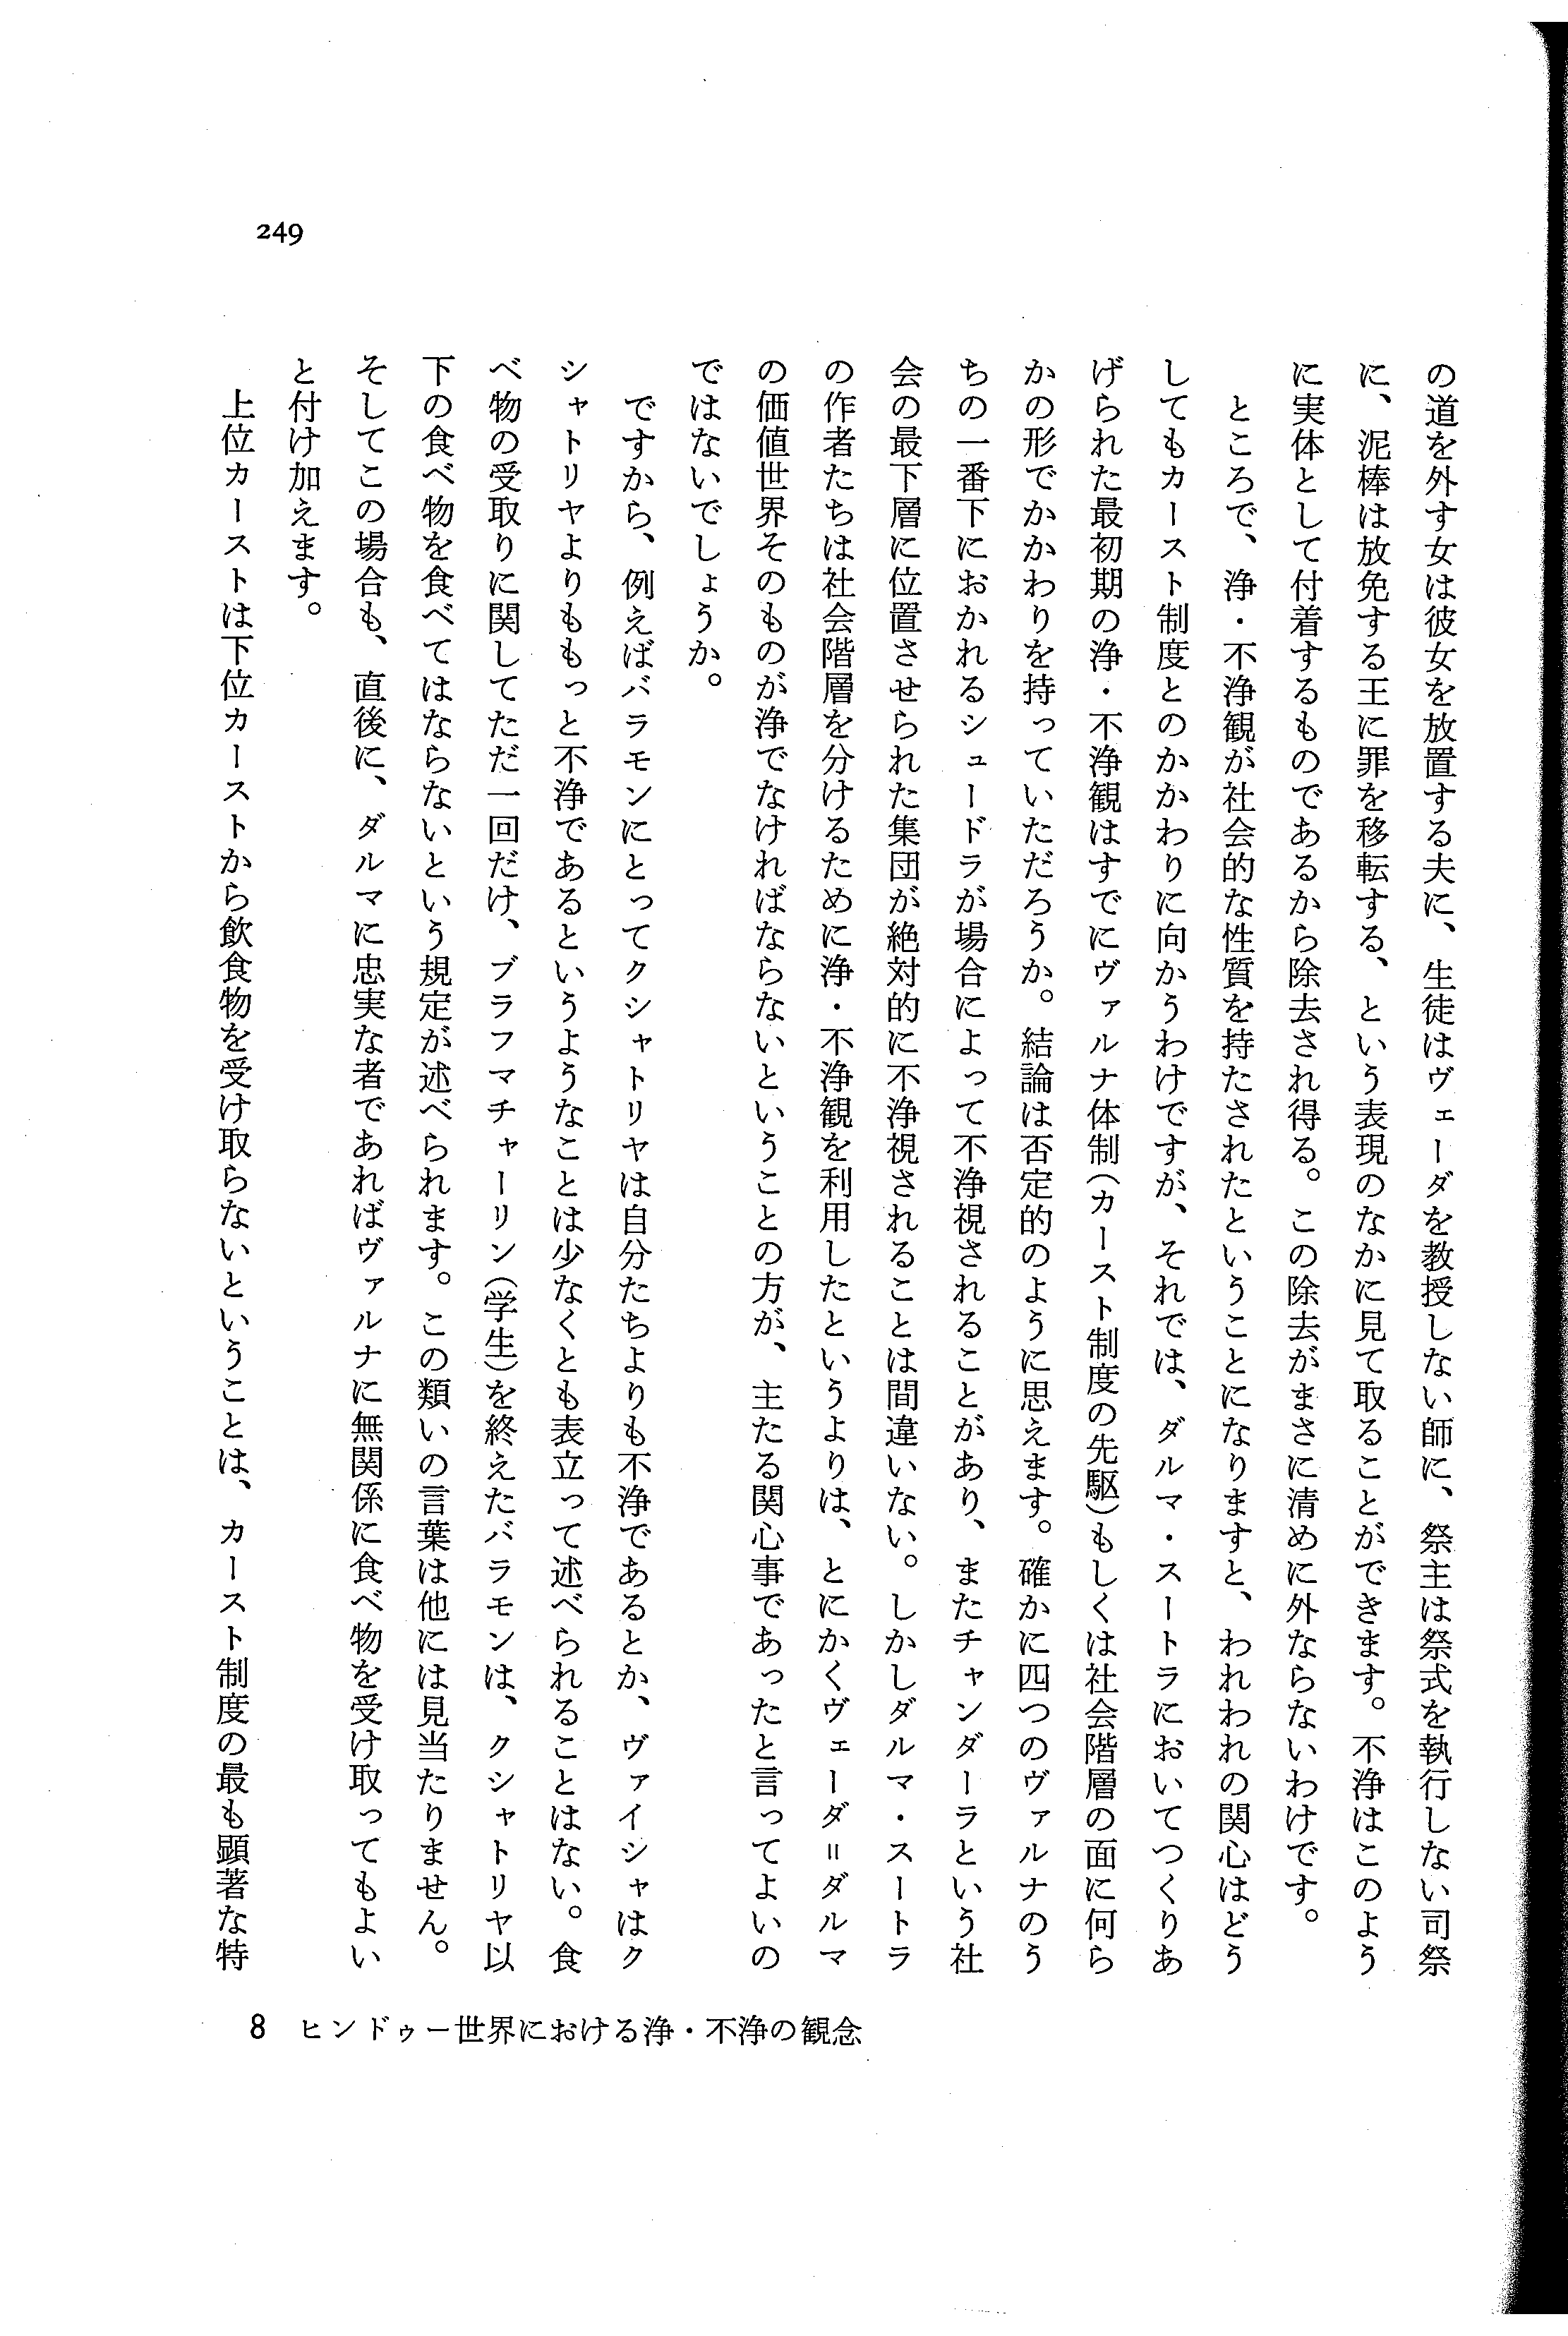 249
の道を外す女は彼女を放置する夫に、生徒はヴェーダを教授しない師に、祭主は祭式を執行しない司祭
に、泥棒は放免する王に罪を移転する、という表現のなかに見て取ることができます。不浄はこのよう
に実体として付着するものであるから除去され得る。この除去がまさに清めに外ならないわけです。
ところで、浄・不浄観が社会的な性質を持たされたということになりますと、われわれの関心はどう
してもカースト制度とのかかわりに向かうわけですが、それでは、ダルマ・スートラにおいてつくりあ
げられた最初期の浄・不浄観はすでにヴァルナ体制(カースト制度の先駆)もしくは社会階層の面に何ら
かの形でかかわりを持っていただろうか。結論は否定的のように思えます。確かに四つのヴァルナのう
ちの一番下におかれるシュードラが場合によって不浄視されることがあり、またチャンダーラという社
会の最下層に位置させられた集団が絶対的に不浄視されることは間違いない。しかしダルマ・スートラ
の作者たちは社会階層を分けるために浄・不浄観を利用したというよりは、とにかくヴェーダ=ダルマ
の価値世界そのものが浄でなければならないということの方が、主たる関心事であったと言ってよいの
ではないでしょうか。
ですから、例えばバラモンにとってクシャトリヤは自分たちよりも不浄であるとか、ヴァイシャはク
シャトリヤよりももっと不浄であるというようなことは少なくとも表立って述べられることはない。食
べ物の受取りに関してただ一回だけ、ブラフマチャーリン(学生)を終えたバラモンは、クシャトリヤ以
下の食べ物を食べてはならないという規定が述べられます。この類いの言葉は他には見当たりません。
そしてこの場合も、直後に、ダルマに忠実な者であればヴァルナに無関係に食べ物を受け取ってもよい
と付け加えます。
上位カーストは下位カーストから飲食物を受け取らないということは、カースト制度の最も顕著な特
8 ヒンドゥー世界における浄・不浄の観念